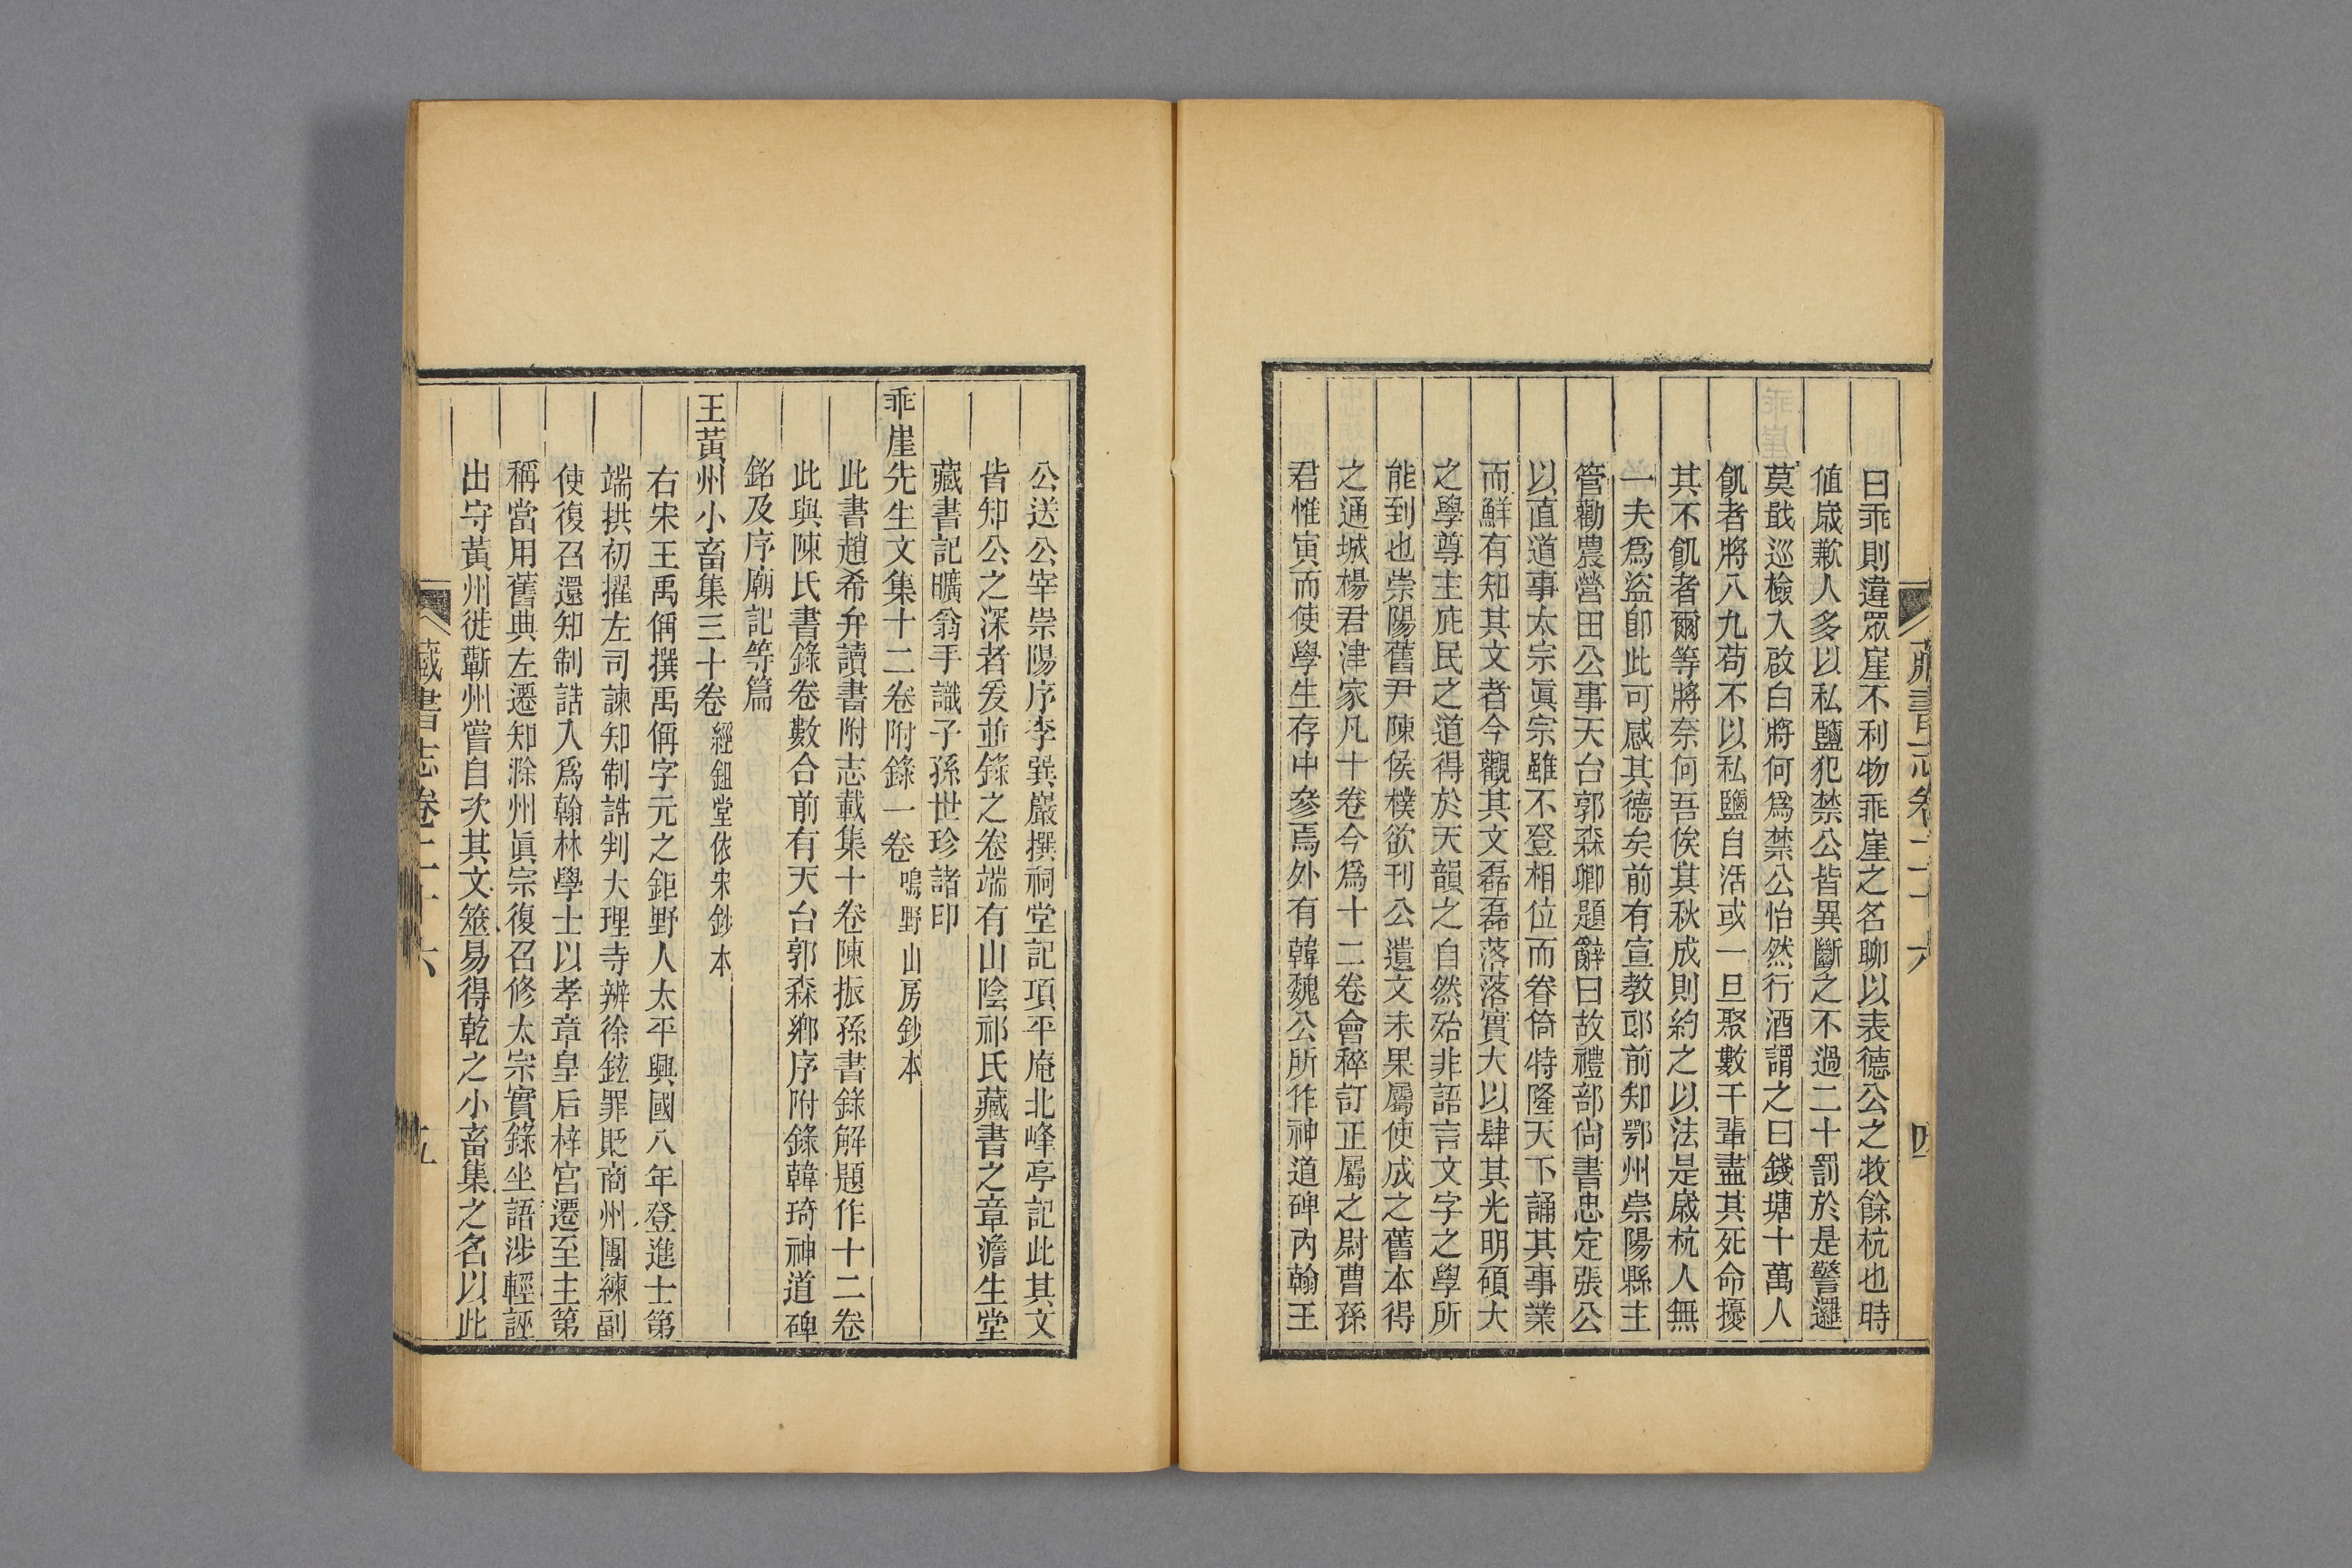 曰乖則違眾崖不利物乖崖之名聊以表德公之牧餘杭也時
值歲歉人多以私鹽犯禁公皆異斷之不過二十罰於是警邏
莫戢巡檢入啟白將何爲禁公怡然行酒謂之曰錢塘十萬人
飢者將八九苟不以私鹽自活或一旦聚數千輩盡其死命擾
其不飢者爾等將奈何吾俟其秋成則約之以法是歲杭人無
一夫爲盜卽此可感其德矣前有宣教郎前知鄂州崇陽縣主
管勸農營田公事天台郭森卿題辭曰故禮部尙書忠定張公
以直道事太宗眞宗雖不登相位而眷倚特隆天下誦其事業
而鮮有知其文者今觀其文磊磊落落實大以肆其光明碩大
之學尊主庇民之道得於天韻之自然殆非語言文字之學所
能到也崇陽舊尹陳侯樸欲刊公遺文未果屬使成之舊本得
之通城楊君津家凡十卷今爲十二卷會稡訂正屬之尉曹孫
君惟寅而使學生存中參焉外有韓魏公所作神道碑內翰王
藏書志卷二十六 四
公送公宰崇陽序李巽巖撰祠堂記項平庵北峰亭記此其文
皆知公之深者爰並錄之卷端有山陰祁氏藏書之章澹生堂
藏書記曠翁手識子孫世珍諸印
乖崖先生文集十二卷附錄一卷 鳴野山房鈔本
此書趙希弁讀書附志載集十卷陳振孫書錄解題作十二卷
此與陳氏書錄卷數合前有天台郭森鄉序附錄韓琦神道碑
銘及序廟記等篇
王黃州小畜集三十卷 經鉏堂依宋鈔本
右宋王禹偁撰禹偁字元之鉅野人太平興國八年登進士第
端拱初擢左司諫知制誥判大理寺辨徐鉉罪貶商州團練副
使復召還知制誥入爲翰林學士以孝章皇后梓宮遷至主第
稱當用舊典左遷知滁州眞宗復召修太宗實錄坐語涉輕誣
出守黃州徙蘄州嘗自次其文筮易得乾之小畜集之名以此
藏書志卷二十六 五